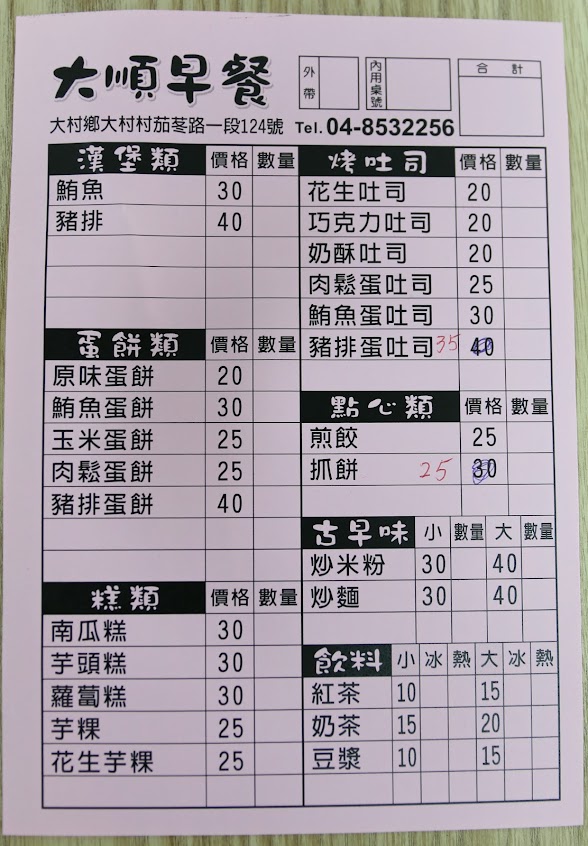 大順早餐
外帶
內用桌號
合計
大村鄉大村村茄苳路一段124號 Tel. 04-8532256
漢堡類 價格 數量
鮪魚 30
豬排 40
蛋餅類 價格 數量
原味蛋餅 20
鮪魚蛋餅 30
玉米蛋餅 25
肉鬆蛋餅 25
豬排蛋餅 40
糕類 價格 數量
南瓜糕 30
芋頭糕 30
蘿蔔糕 30
芋粿 25
花生芋粿 25
烤吐司 價格 數量
花生吐司 20
巧克力吐司 20
奶酥吐司 20
肉鬆蛋吐司 25
鮪魚蛋吐司 30
豬排蛋吐司 35 40
點心類 價格 數量
煎餃 25
抓餅 25 30
古早味 小 數量 大 數量
炒米粉 30 40
炒麵 30 40
飲料 小 冰 熱 大 冰 熱
紅茶 10 15
奶茶 15 20
豆漿 10 15